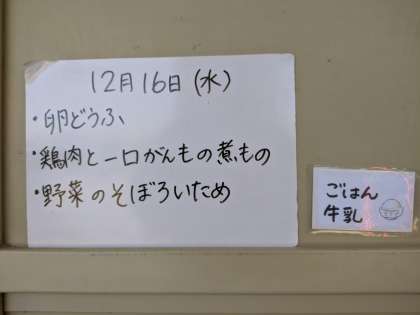 12月16日(水)
・卵どうふ
・鶏肉と一口がんもの煮もの
・野菜のそぼろいため
ごはん
牛乳